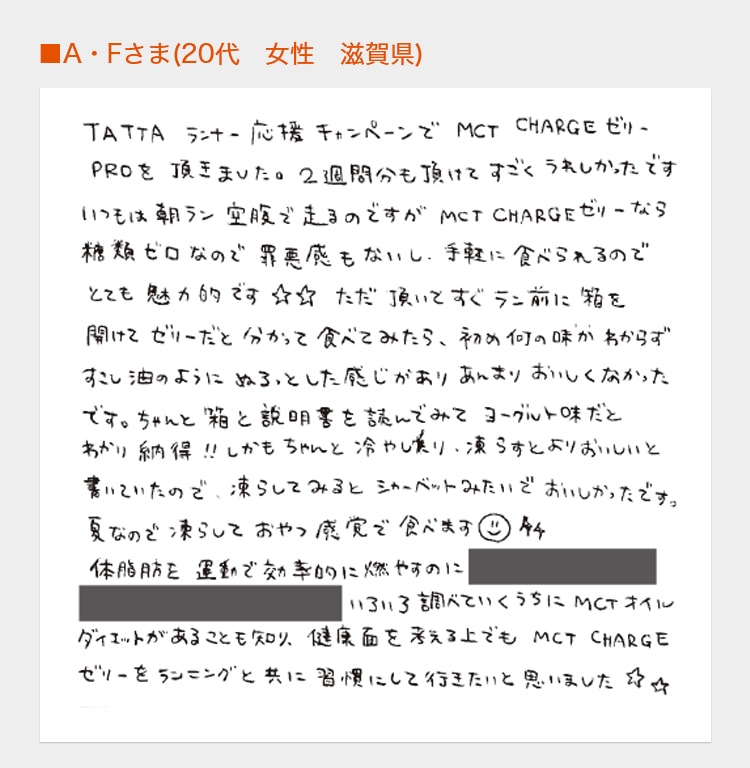 ■A・Fさま(20代　女性　滋賀県)
TATTA ランナー応援キャンペーンで MCT CHARGEゼリー
PROを 頂きました。2週間分も頂けて すごく うれしかったです
いつもは朝ラン 空腹で走るのですが MCT CHARGEゼリーなら
糖類ゼロなので 罪悪感もないし、手軽に食べられるので
とても 魅力的です ☆☆ ただ 頂いてすぐ ラン前に 箱を
開けて ゼリーだと 分かって 食べてみたら、初め何の味かわからず
すこし油のように ぬるっとした感じがあり あんまり おいしくなかった
です。ちゃんと 箱と説明書を読んでみて ヨーグルト味だと
わかり 納得!! しかもちゃんと 冷やしたり、凍らすとよりおいしいと
書いていたので、凍らしてみると シャーベットみたいで おいしかったです。
夏なので 凍らして おやつ感覚で 食べます
体脂肪を 運動で効率的に燃やすのに
いろいろ調べていくうちに MCTオイル
ダイエットがあることも知り、健康面を考える上でも MCT CHARGE
ゼリーを ランニングと共に 習慣にして行きたいと思いました ☆☆